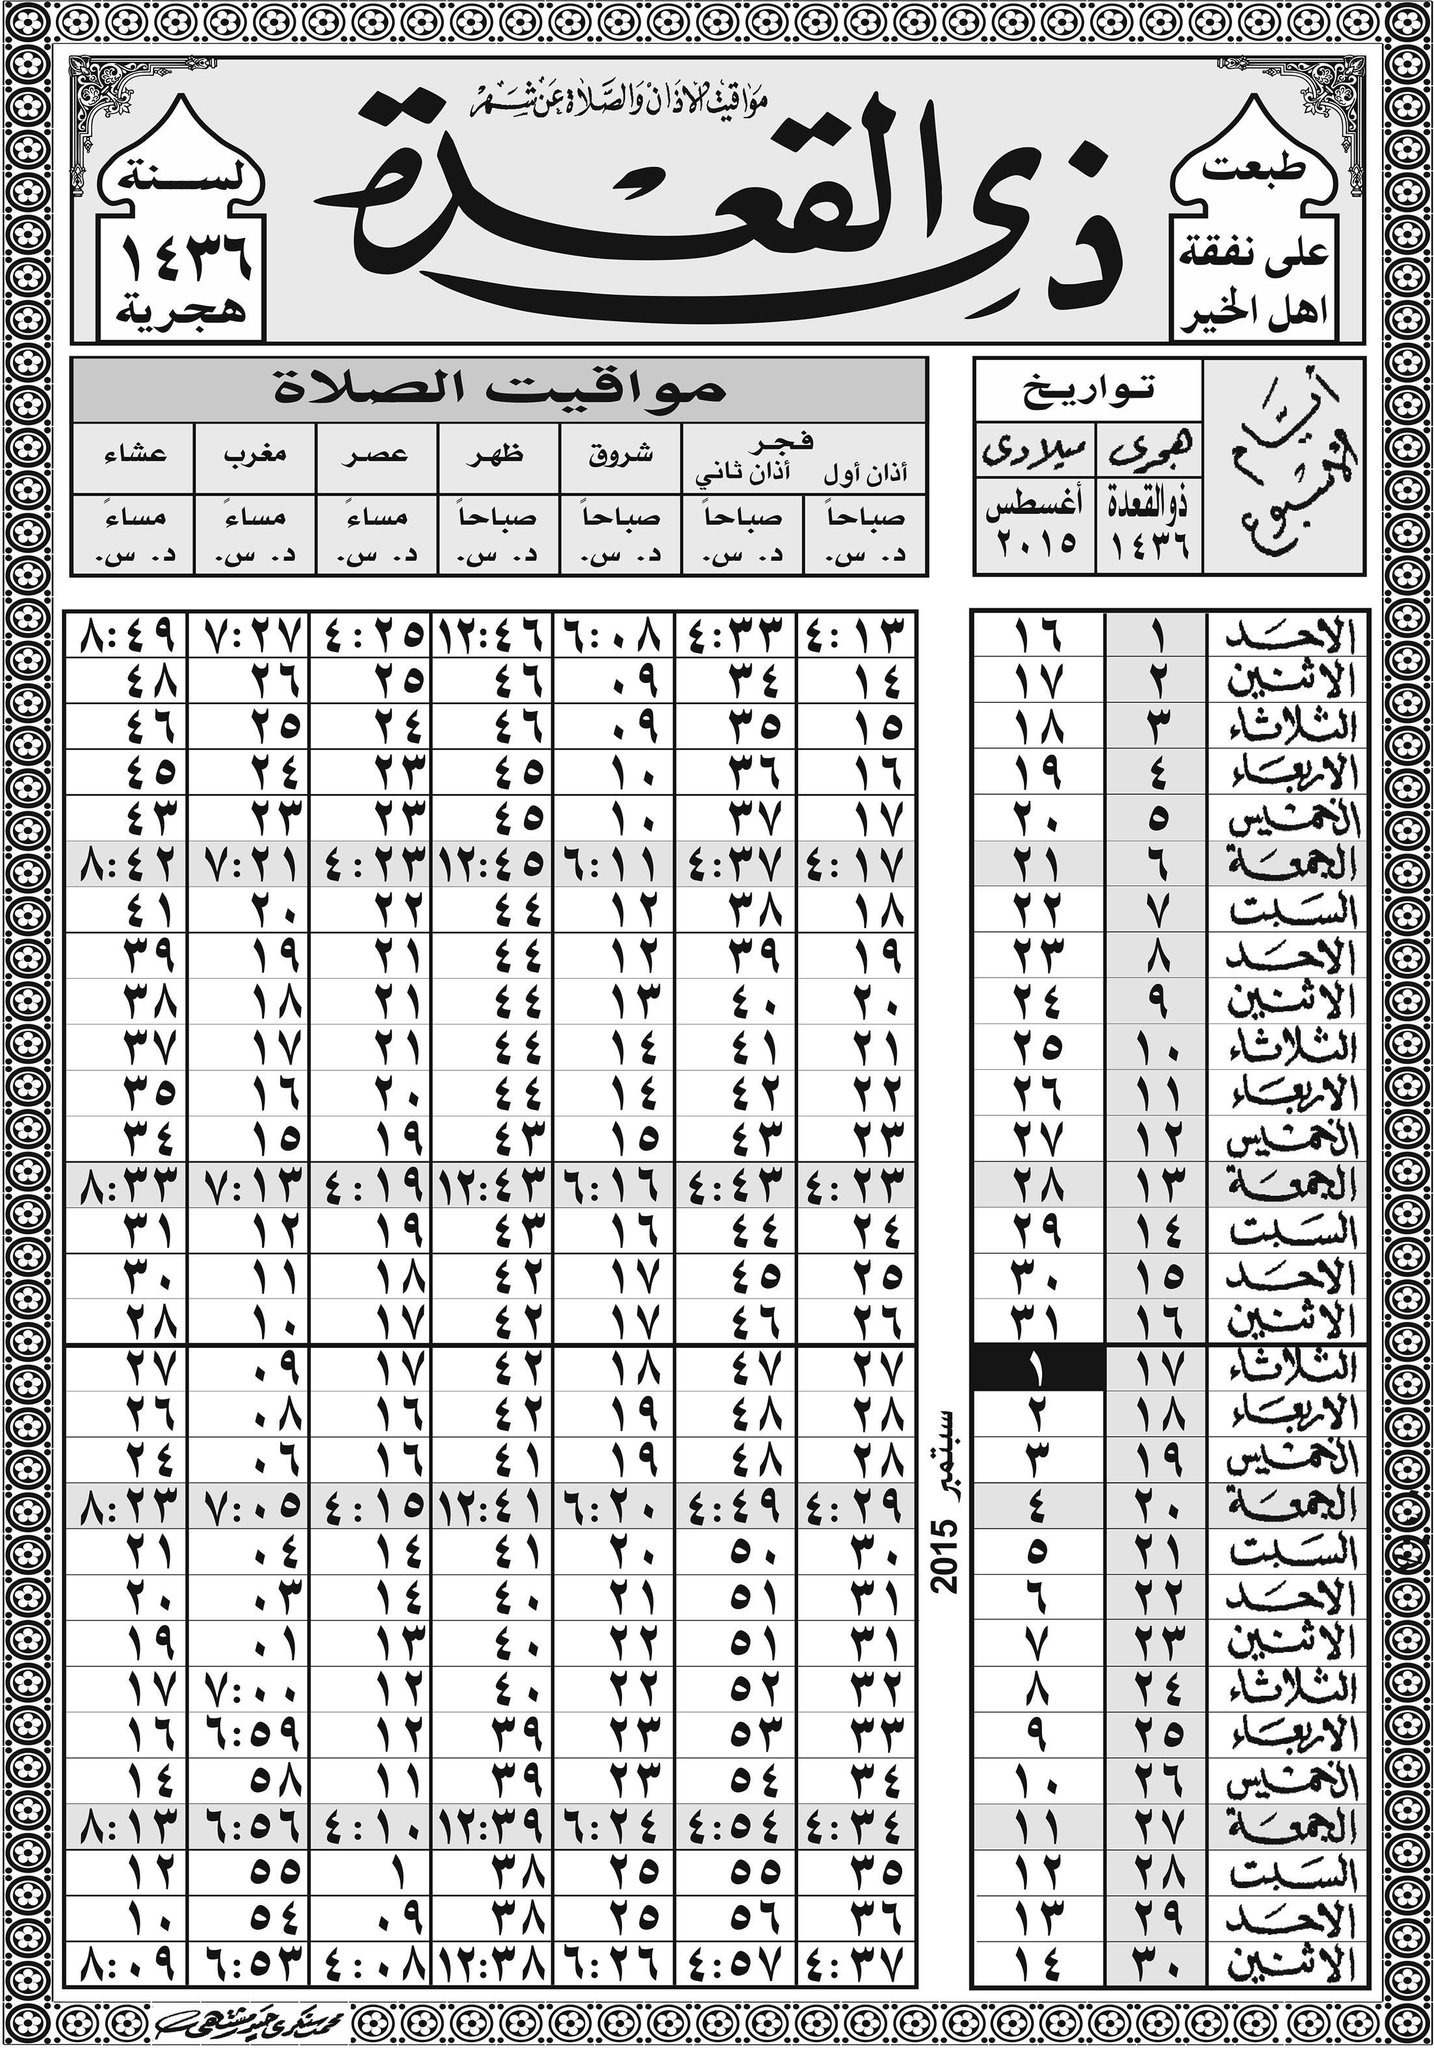 مواقيت الاذان والصلاة عن شهر
ذي القعدة
طبعت
على نفقة
اهل الخير
لسنة
١٤٣٦
هجرية
أيام الاسبوع
تواريخ
هجري ميلادى
ذوالقعدة ١٤٣٦ أغسطس ٢٠١٥
مواقيت الصلاة
فجر شروق ظهر عصر مغرب عشاء
أذان أول أذان ثاني
صباحاً صباحاً صباحاً صباحاً مساءً مساءً مساءً
د. س. د. س. د. س. د. س. د. س. د. س. د. س.
الاحد ١ ١٦ ٤:١٣ ٤:٣٣ ٦:٠٨ ١٢:٤٦ ٤:٢٥ ٧:٢٧ ٨:٤٩
الاثنين ٢ ١٧ ١٤ ٣٤ ٠٩ ٤٦ ٢٥ ٢٦ ٤٨
الثلاثاء ٣ ١٨ ١٥ ٣٥ ٠٩ ٤٦ ٢٤ ٢٥ ٤٦
الاربعاء ٤ ١٩ ١٦ ٣٦ ١٠ ٤٥ ٢٣ ٢٤ ٤٥
الخميس ٥ ٢٠ ١٧ ٣٧ ١٠ ٤٥ ٢٣ ٢٣ ٤٣
الجمعة ٦ ٢١ ٤:١٧ ٤:٣٧ ٦:١١ ١٢:٤٥ ٤:٢٣ ٧:٢١ ٨:٤٢
السبت ٧ ٢٢ ١٨ ٣٨ ١٢ ٤٤ ٢٢ ٢٠ ٤١
الاحد ٨ ٢٣ ١٩ ٣٩ ١٢ ٤٤ ٢١ ١٩ ٣٩
الاثنين ٩ ٢٤ ٢٠ ٤٠ ١٣ ٤٤ ٢١ ١٨ ٣٨
الثلاثاء ١٠ ٢٥ ٢١ ٤١ ١٤ ٤٤ ٢١ ١٧ ٣٧
الاربعاء ١١ ٢٦ ٢٢ ٤٢ ١٤ ٤٤ ٢٠ ١٦ ٣٥
الخميس ١٢ ٢٧ ٢٣ ٤٣ ١٥ ٤٣ ١٩ ١٥ ٣٤
الجمعة ١٣ ٢٨ ٤:٢٣ ٤:٤٣ ٦:١٦ ١٢:٤٣ ٤:١٩ ٧:١٣ ٨:٣٣
السبت ١٤ ٢٩ ٢٤ ٤٤ ١٦ ٤٣ ١٩ ١٢ ٣١
الاحد ١٥ ٣٠ ٢٥ ٤٥ ١٧ ٤٢ ١٨ ١١ ٣٠
الاثنين ١٦ ٣١ ٢٦ ٤٦ ١٧ ٤٢ ١٧ ١٠ ٢٨
الثلاثاء ١٧ ١ ٢٧ ٤٧ ١٨ ٤٢ ١٧ ٠٩ ٢٧
الاربعاء ١٨ ٢ ٢٨ ٤٨ ١٩ ٤٢ ١٦ ٠٨ ٢٦
الخميس ١٩ ٣ ٢٨ ٤٨ ١٩ ٤١ ١٦ ٠٦ ٢٤
الجمعة ٢٠ ٤ ٤:٢٩ ٤:٤٩ ٦:٢٠ ١٢:٤١ ٤:١٥ ٧:٠٥ ٨:٢٣
السبت ٢١ ٥ ٣٠ ٥٠ ٢٠ ٤١ ١٤ ٠٤ ٢١
الاحد ٢٢ ٦ ٣١ ٥١ ٢١ ٤٠ ١٤ ٠٣ ٢٠
الاثنين ٢٣ ٧ ٣١ ٥١ ٢٢ ٤٠ ١٣ ٠١ ١٩
الثلاثاء ٢٤ ٨ ٣٢ ٥٢ ٢٢ ٤٠ ١٢ ٧:٠٠ ١٧
الاربعاء ٢٥ ٩ ٣٣ ٥٣ ٢٣ ٣٩ ١٢ ٦:٥٩ ١٦
الخميس ٢٦ ١٠ ٣٤ ٥٤ ٢٣ ٣٩ ١١ ٥٨ ١٤
الجمعة ٢٧ ١١ ٤:٣٤ ٤:٥٤ ٦:٢٤ ١٢:٣٩ ٤:١٠ ٦:٥٦ ٨:١٣
السبت ٢٨ ١٢ ٣٥ ٥٥ ٢٥ ٣٨ ١ ٥٥ ١٢
الاحد ٢٩ ١٣ ٣٦ ٥٦ ٢٥ ٣٨ ٠٩ ٥٤ ١٠
الاثنين ٣٠ ١٤ ٤:٣٧ ٤:٥٧ ٦:٢٦ ١٢:٣٨ ٤:٠٨ ٦:٥٣ ٨:٠٩
سبتمبر 2015